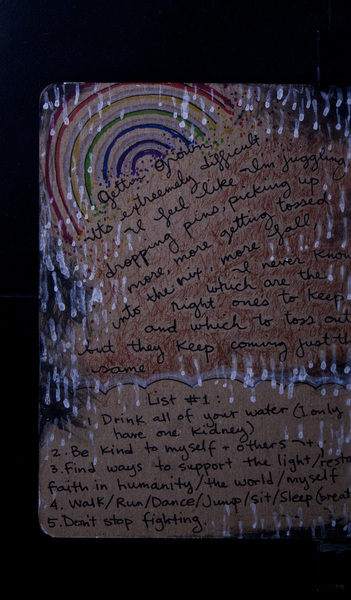 Gettin' grown
its extreemely difficult
I feel like I'm juggling
dropping pins, picking up
more, more getting tossed
into the mix, more fall
I never know
which are the
right ones to keep
and which to toss out
but they keep coming just the
same
List #1:
1. Drink all of your water (I only
have one kidney)
2. Be kind to myself + others
3. Find ways to support the light/resto
faith in humanity/the world/myself
4. Walk/Run/Dance/Jump/Sit/Sleep (breat
5. Don't stop fighting.